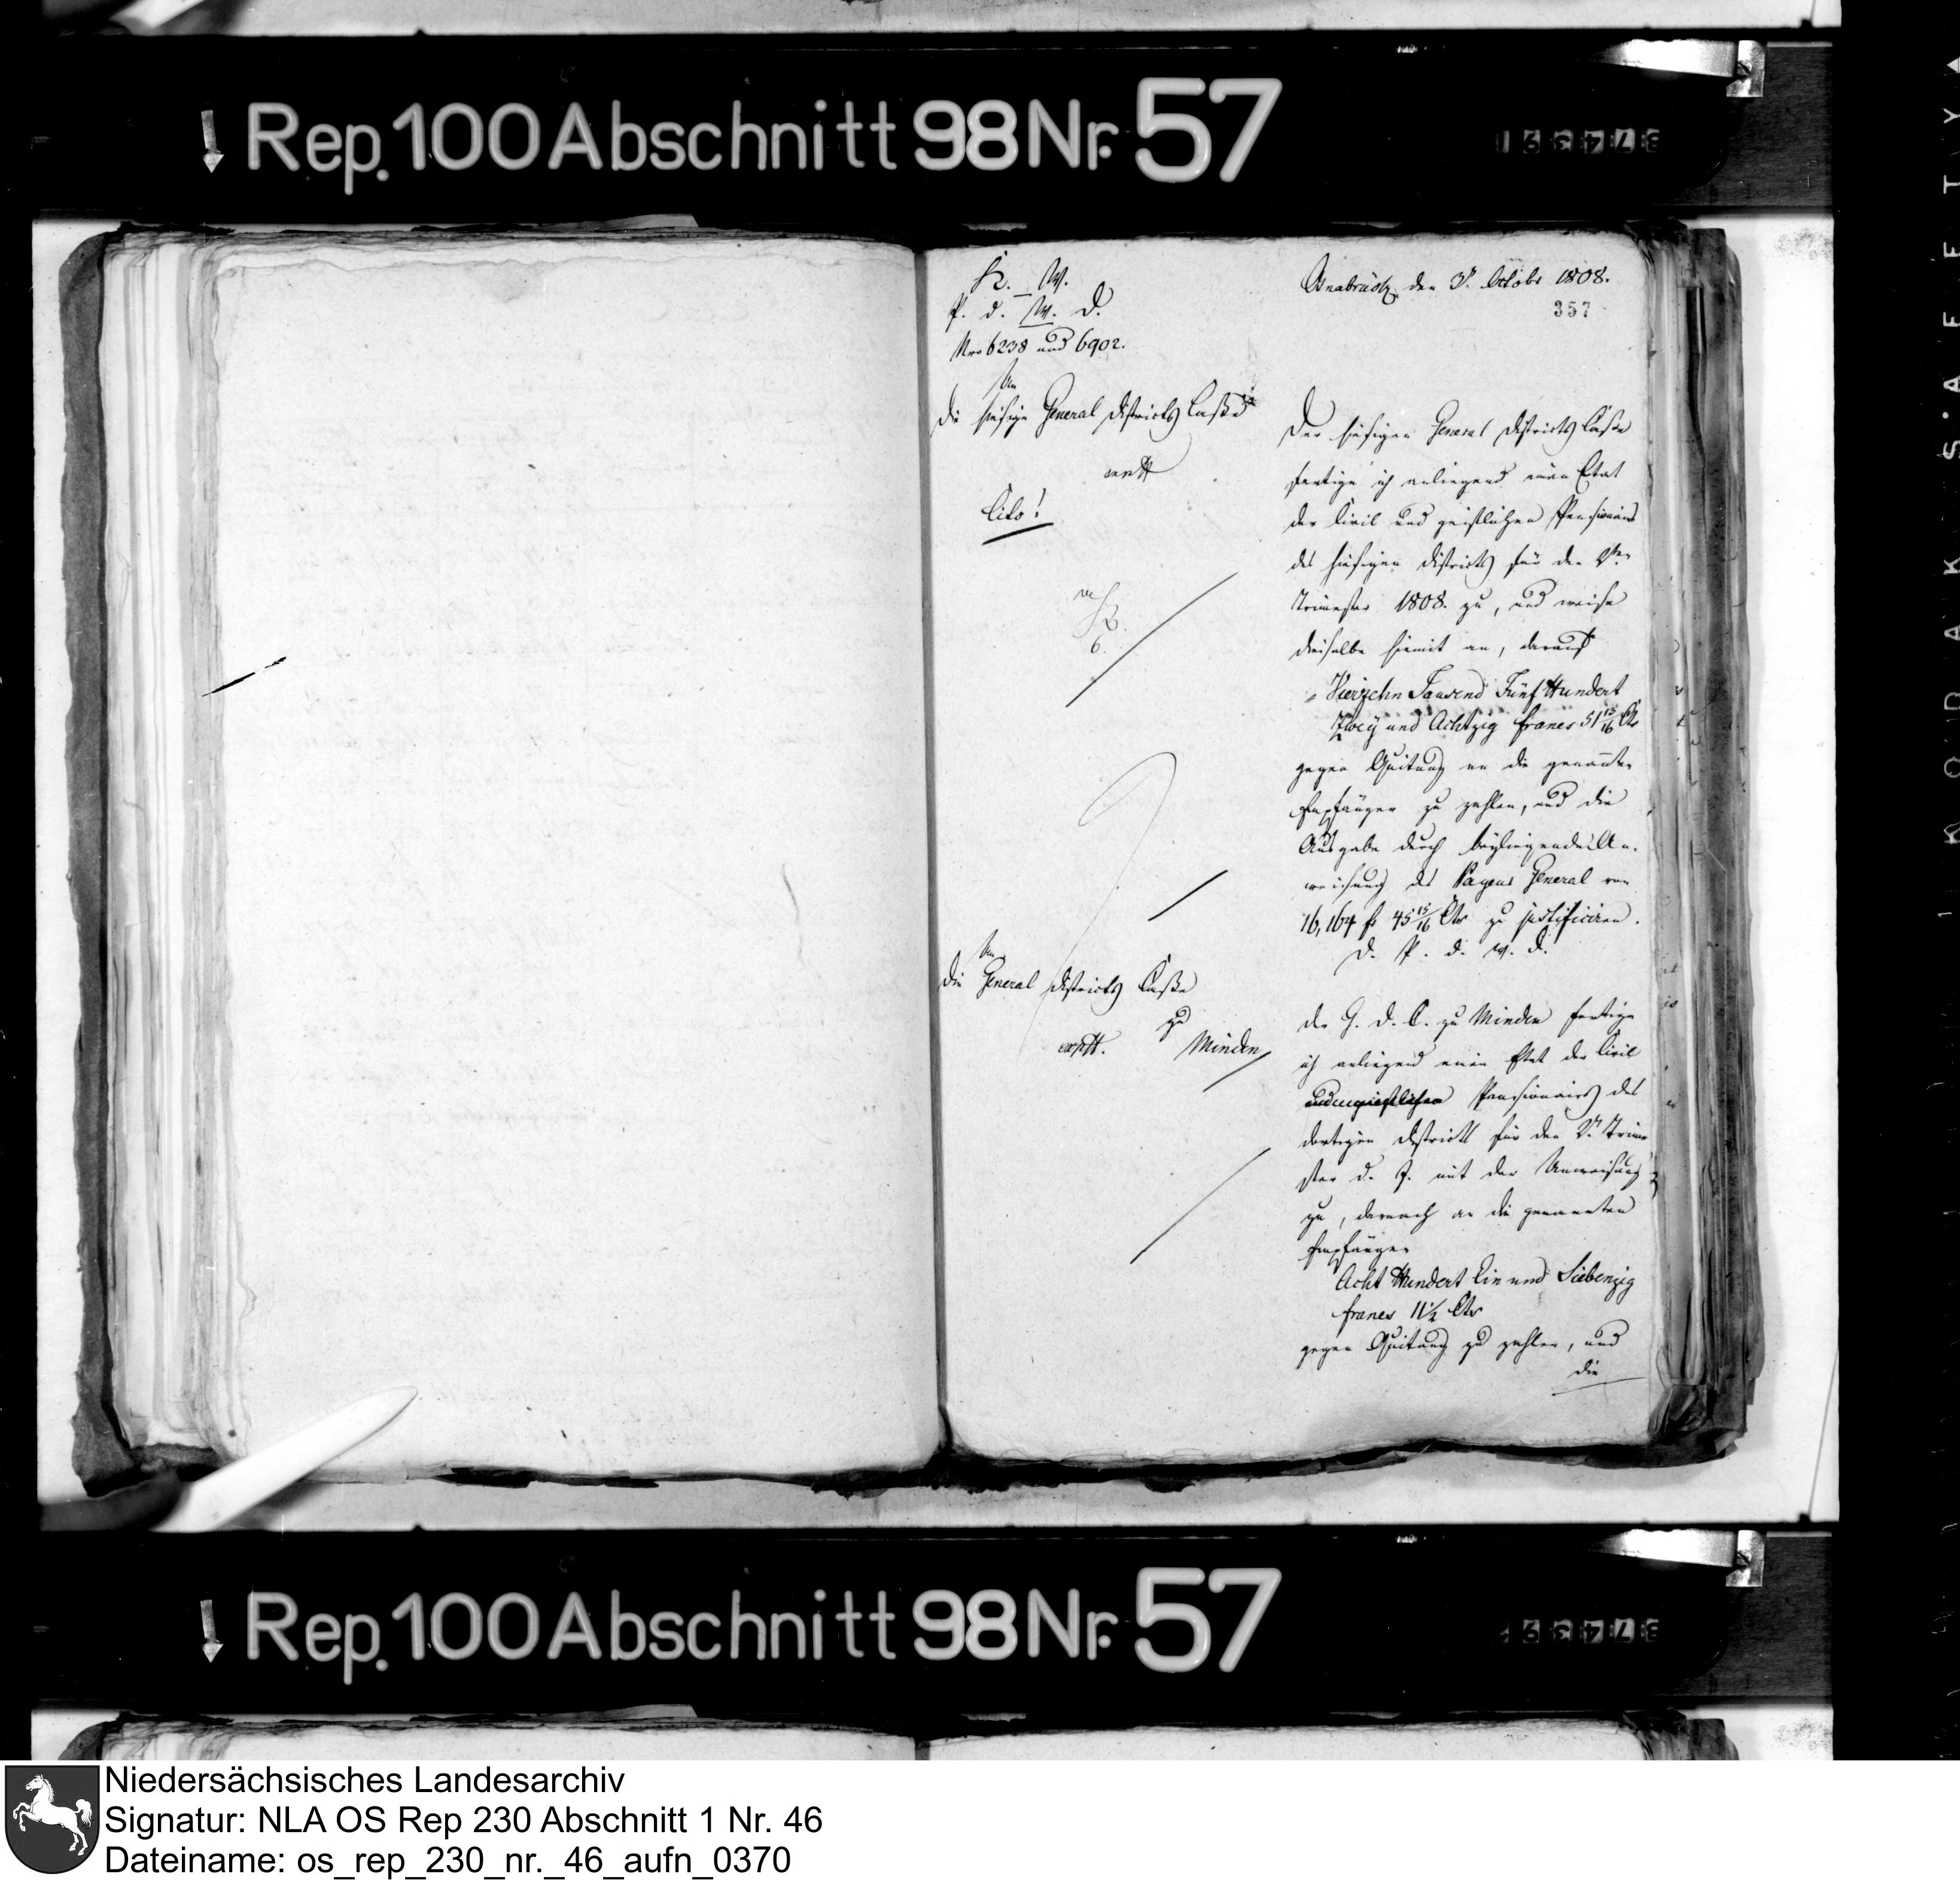 Rep. 100 Abschnitt 98 Nr. 57
K. W.
P. d. W. D.
Nro 6238 und 6902.
An
die hiesige General Districts Casse
Cito!
An
die General Districts Casse
zu
Minden
Osnabrück den 3t. Octobr 1808.
357
Der hiesigen General Districts Casse
fertige ich anliegend einen Etat
der Civil und geistlichen Pensionairs
des hiesigen Districts für den 2ten
Trimester 1808. zu, und weise
dieselbe hiemit an, darauf
Vierzehn Tausend Fünf Hundert
Zwey und Achtzig Francs 51 15/16 Cts
gegen Quitung an die genannten
Empfänger zu zahlen, und die
Ausgabe durch beyliegende An-
weisung des Payeur General von
16,164 fr 45 15/16 Cts zu justificiren.
D. P. d. W. D.
Der G. D. C. zu Minden fertige
ich anliegend einen Etat der Civil
und geistlichen Pensionairs des
dortigen Districts für den 2t. Trime
ster d. J. mit der Anweisung
zu, darnach an die genannten
Empfänger
Acht Hundert Ein und Siebenzig
Francs 11 1/2 Cts
gegen Quitung zu zahlen, und
die
Rep. 100 Abschnitt 98 Nr. 57
Niedersächsisches Landesarchiv
Signatur: NLA OS Rep 230 Abschnitt 1 Nr. 46
Dateiname: os_rep_230_nr._46_aufn_0370